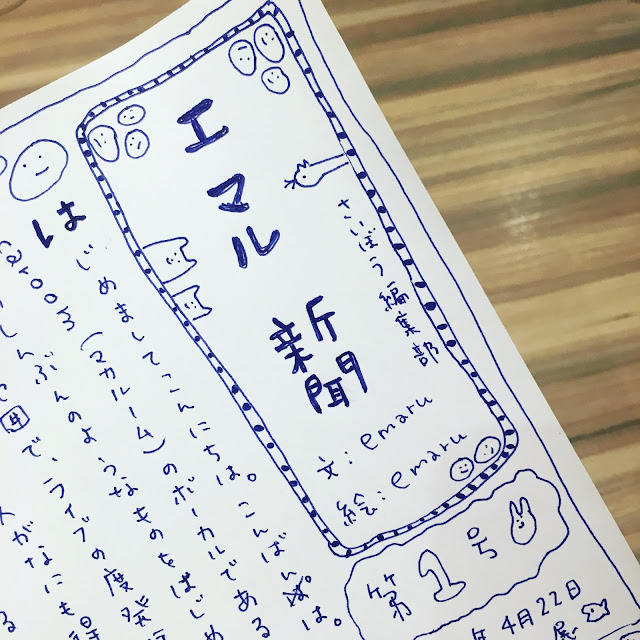 エマル新聞
さいぼう編集部
文:emaru
絵:emaru
第1号
年4月22日
はじめましてこんにちは。こんばんは。
caroom(マカルーム)のボーカルである
しんぶんのようなものをはじめ
で、ライブの度発
がなにも